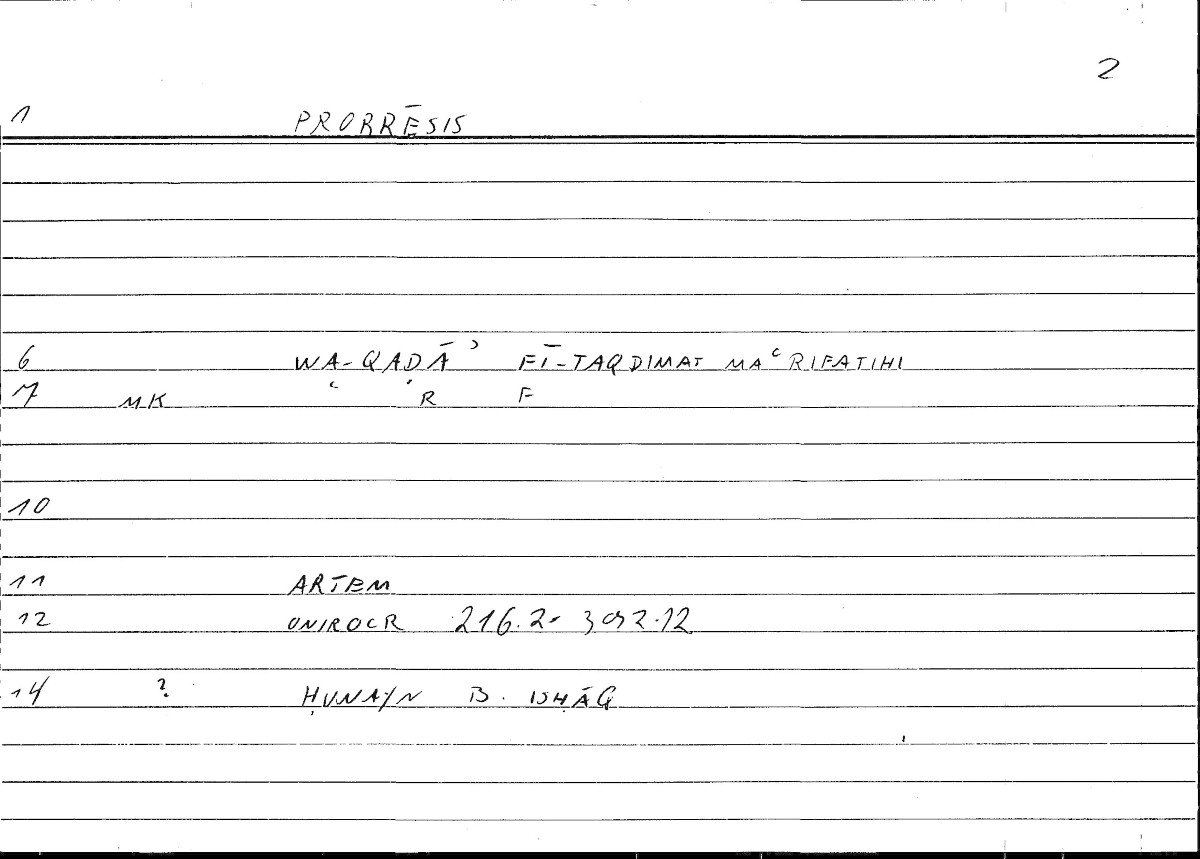 2
1 PRORRĒSIS
6 WA-QADĀʾ FĪ-TAQDIMAT MAʿRIFATIHI
7 MK ʿ ʾ R F
10
11 ARTEM
12 ONIROCR 216.2- 392.12
14 ? ḤUNAYN B. ISḤĀQ